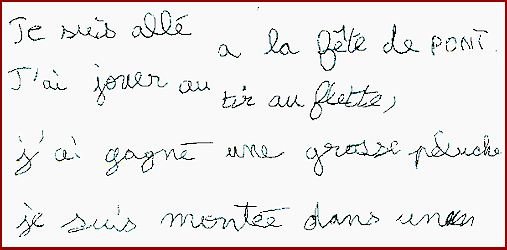 Je suis allé a la fête de PONT.
J'ai jouer au tir au flette,
j'ai gagné une grosse peluche
je suis montée dans un